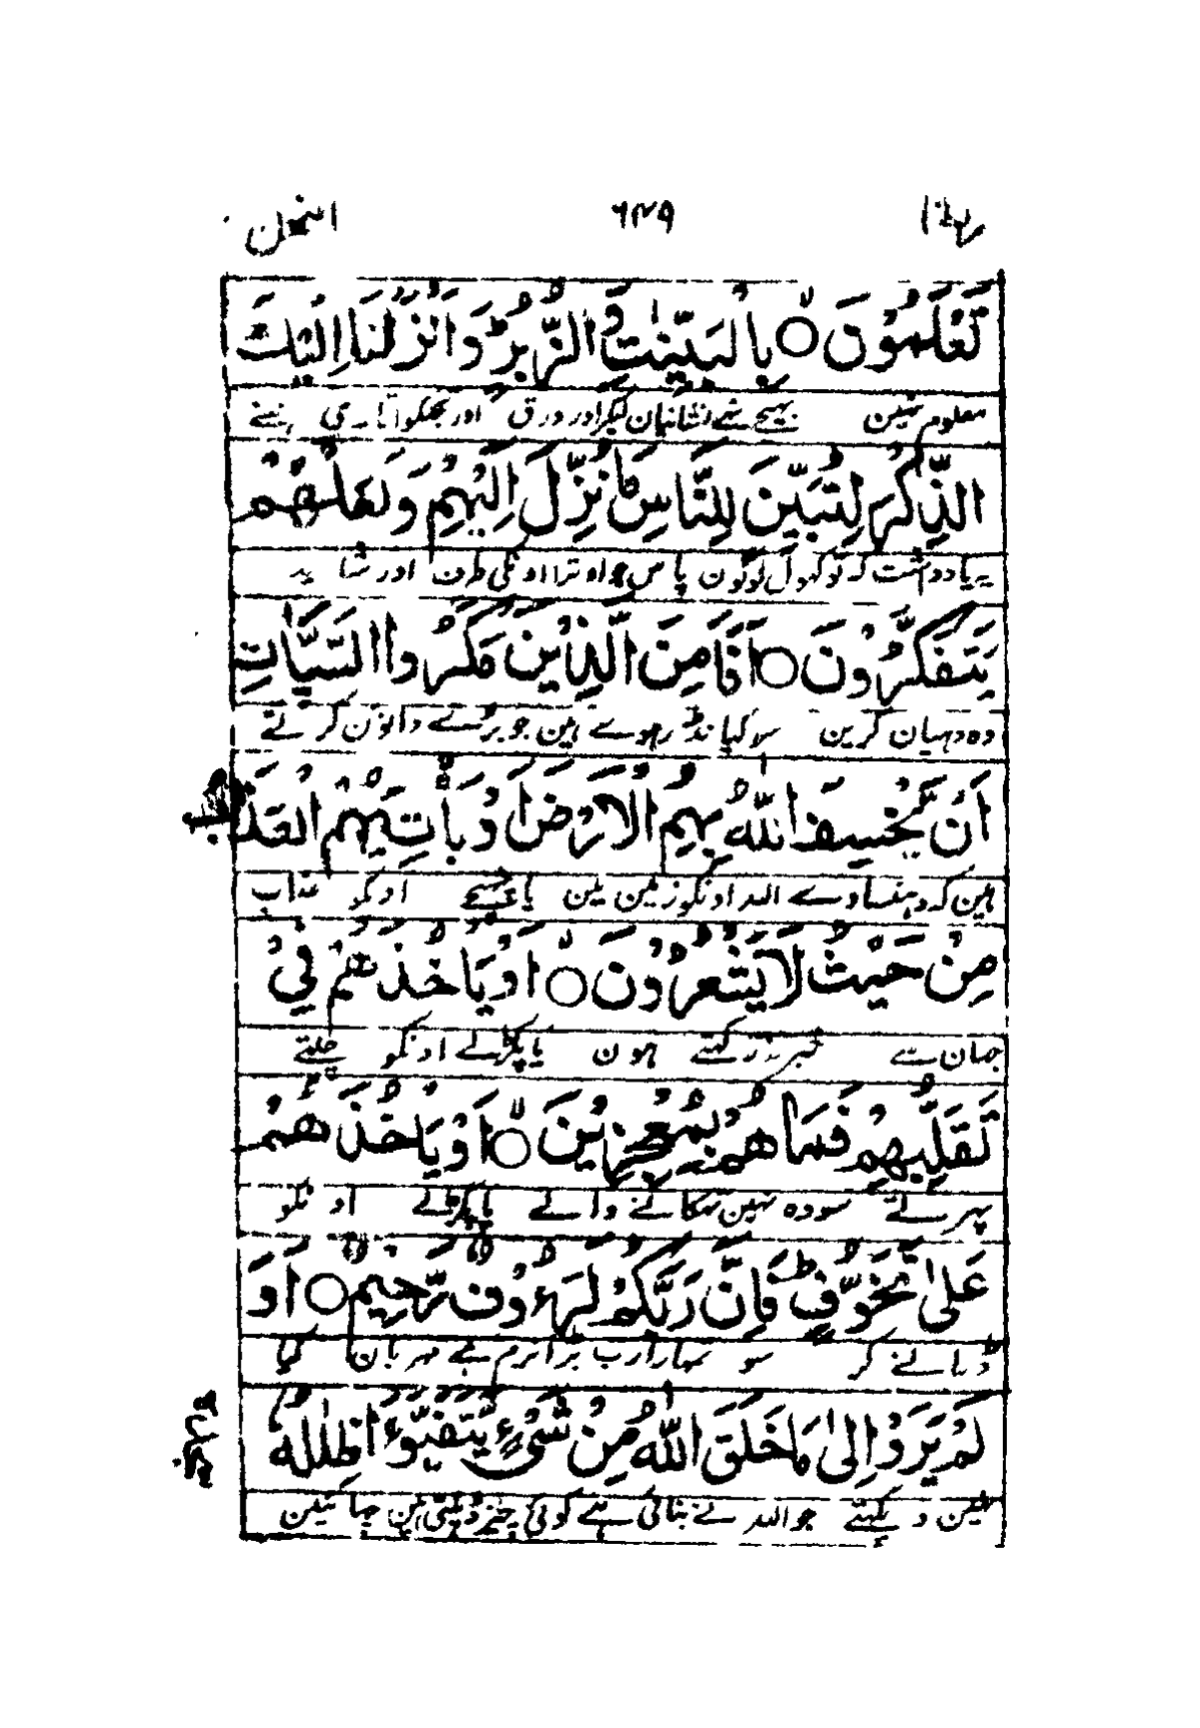 ربما ۶۴۹ النحل
تَعْلَمُوْنَ ○ بِالْبَيِّنٰتِ وَالزُّبُرِ وَاَنْزَلْنَا اِلَيْكَ
معلوم نہین بہیجے تہے نشانیان لیکر اور ورق اور تجھکو اتاری ہمنے
الذِّكْرَ لِتُبَيِّنَ لِلنَّاسِ مَا نُزِّلَ اِلَيْهِمْ وَلَعَلَّهُمْ
یہ یادداشت کہ تو کہول لوگون پاس جو اوترا اونکی طرف اور شاید
يَتَفَكَّرُوْنَ ○ اَفَاَمِنَ الَّذِيْنَ مَكَرُوا السَّيِّاٰتِ
وہ دہیان کرین سو کیا نڈر ہوے ہین جو برے داؤن کرتے
اَنْ يَّخْسِفَ اللّٰهُ بِهِمُ الْاَرْضَ اَوْ يَاْتِيَهُمُ الْعَذَابُ
ہین کہ دہنسا دے اللہ اونکو زمین مین یا پہنچے اونکو عذاب
مِنْ حَيْثُ لَا يَشْعُرُوْنَ ○ اَوْ يَاْخُذَهُمْ فِيْ
جہان سے خبر نہ رکہتے ہون یا پکڑلے اونکو چلتے
تَقَلُّبِهِمْ فَمَا هُمْ بِمُعْجِزِيْنَ ○ اَوْ يَاْخُذَهُمْ
پہرتے سو وہ نہین تہکانے والے یا پکڑلے اونکو
عَلٰى تَخَوُّفٍ فَاِنَّ رَبَّكُمْ لَرَءُوْفٌ رَّحِيْمٌ ○ اَوَ
ڈرانے کر سو تمہارا رب بڑا نرم ہے مہربان کیا
لَمْ يَرَوْا اِلٰى مَا خَلَقَ اللّٰهُ مِنْ شَيْءٍ يَّتَفَيَّؤُا ظِلٰلُهٗ
نہین دیکہتے جو اللہ نے بنائی ہے کوئی چیز ڈہلتی ہین چہائین